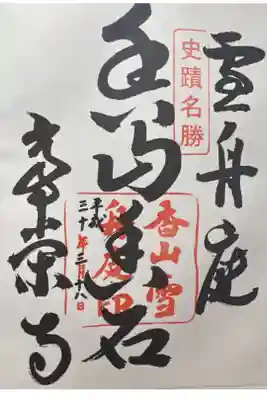 雪舟庭
史蹟名勝
香山雪
舟庭印
平成
三十年三月十八日
常栄寺